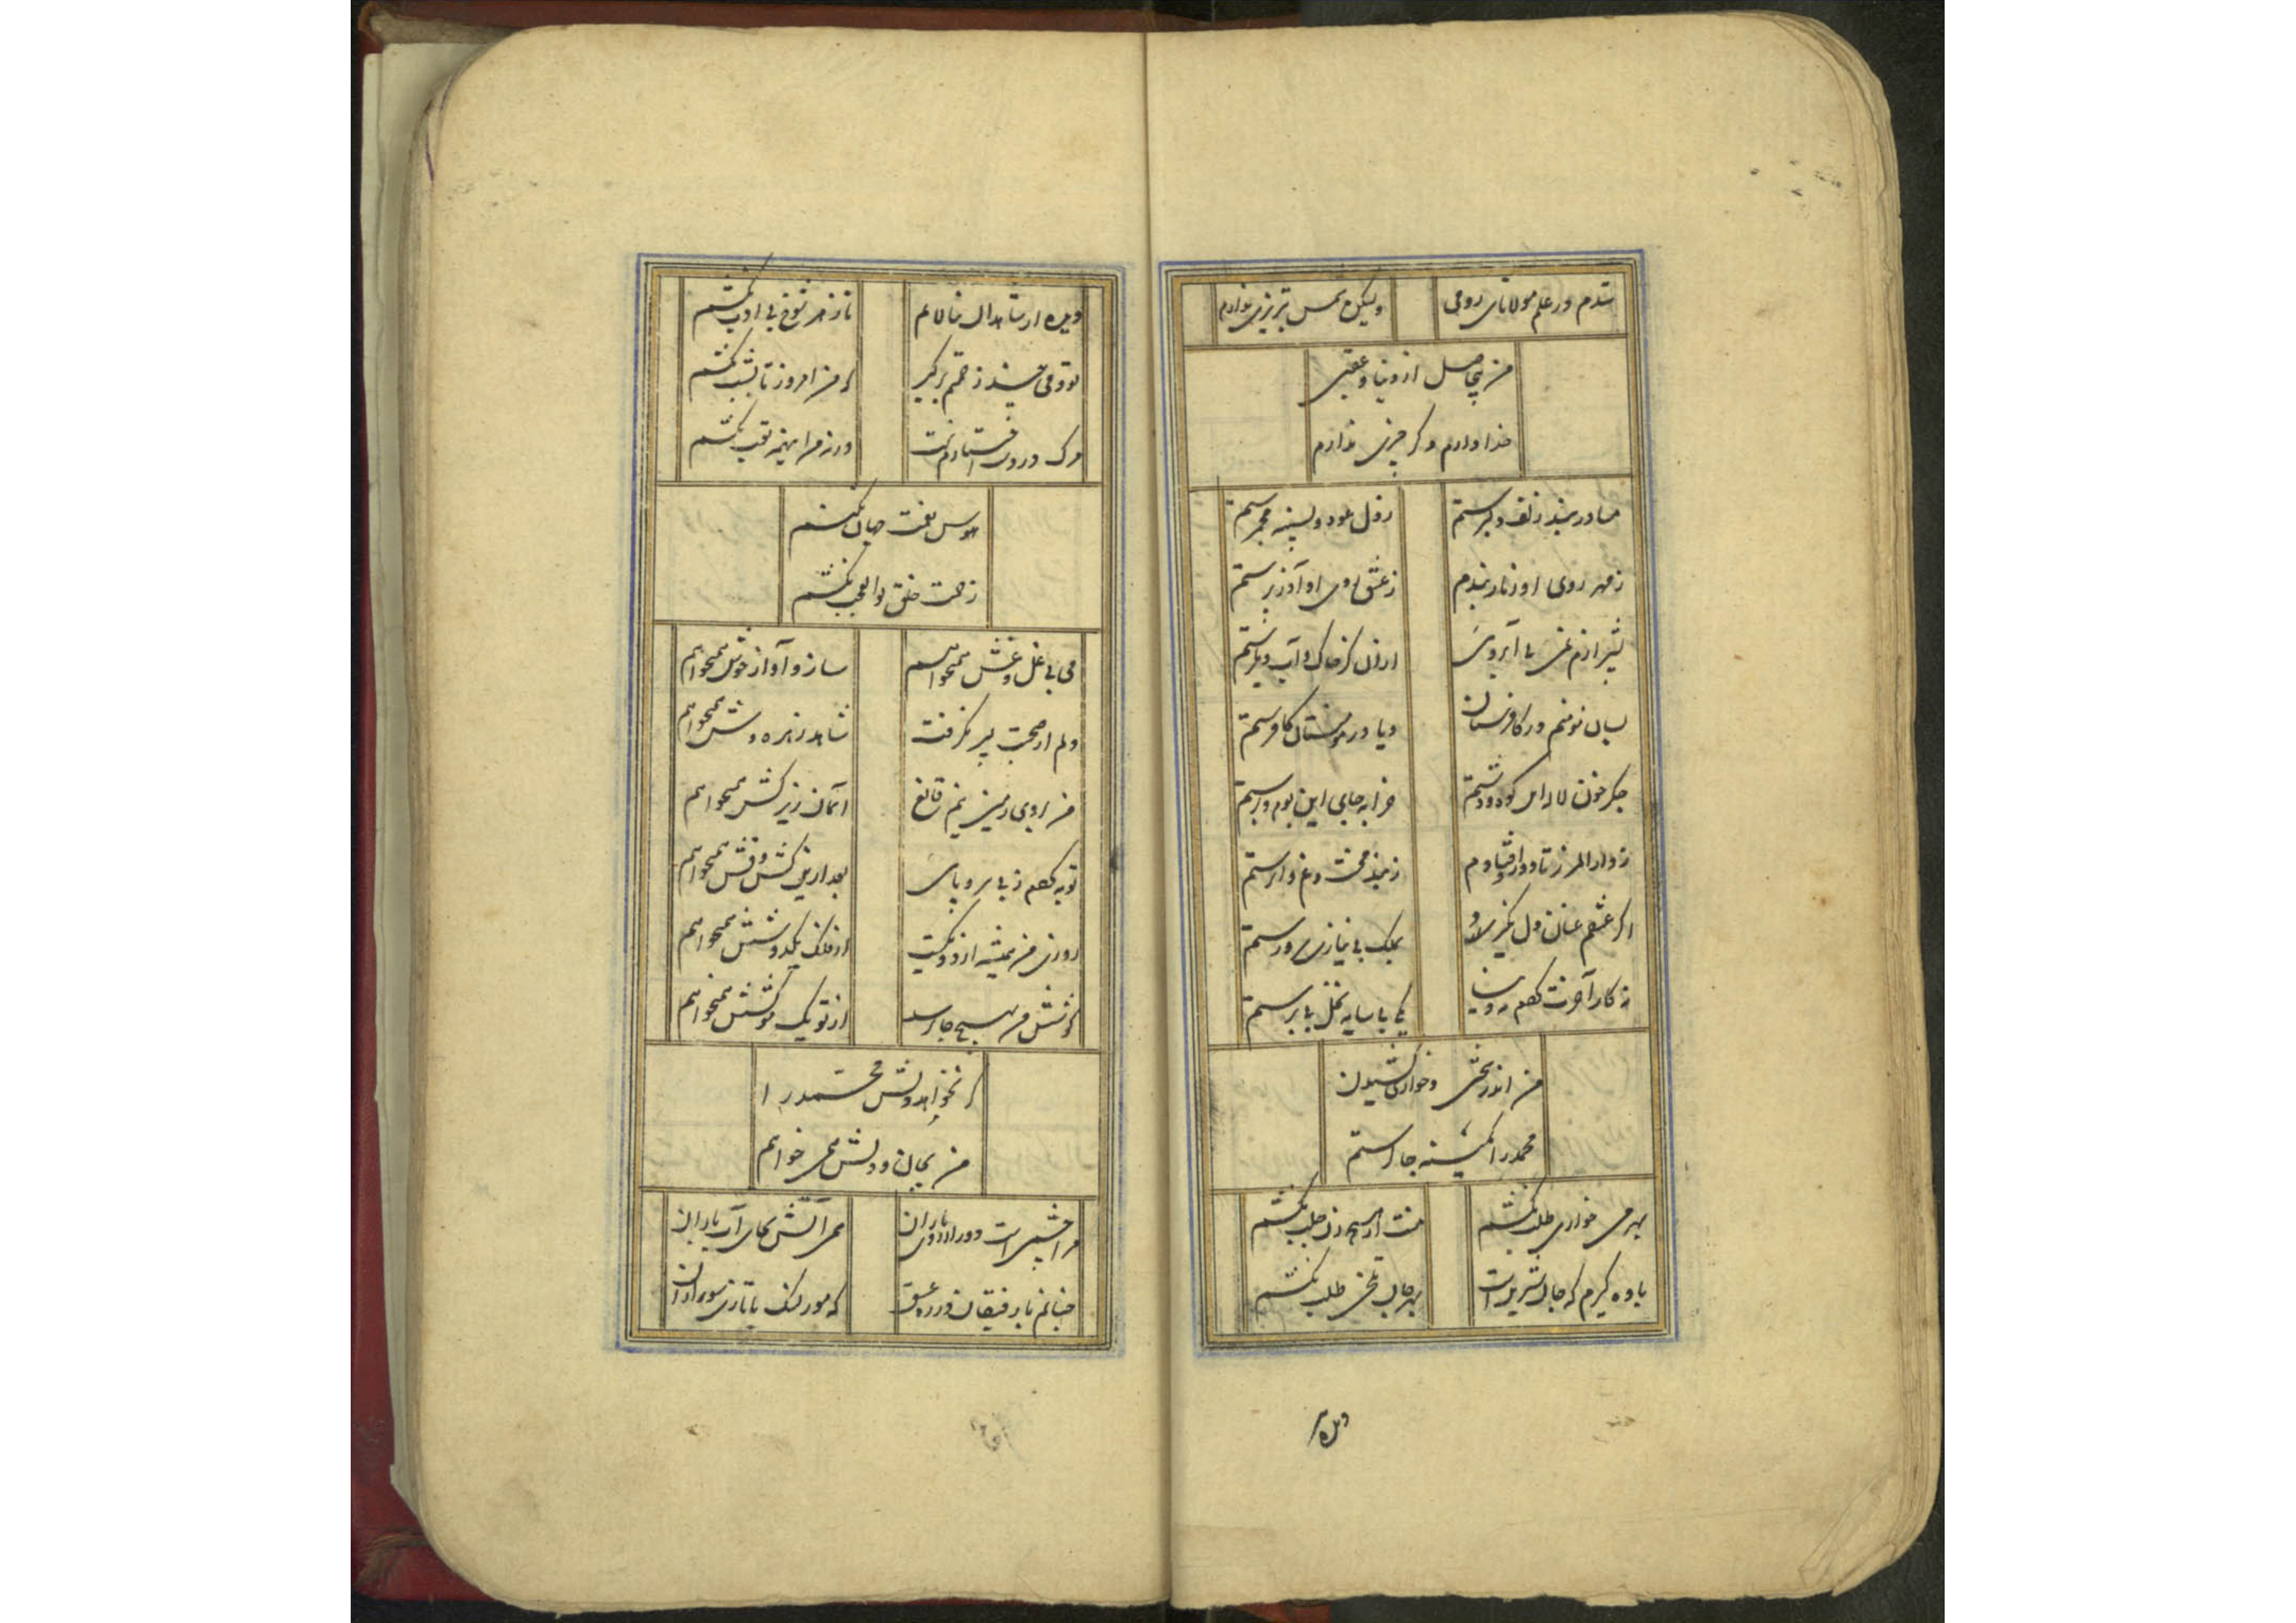 شدم در علم مولانای رومی ولیکن شمس تبریزی ندارم
من بیحاصل از دنیا و عقبی
خدا دارم دگر چیزی ندارم
منادر بند زلف دلبرستم ز دل عود و بسینه مجمرستم
ز مهر روی او زنار بندم ز عشق روی او آذر پرستم
بی آبروی از دل کز خاک و آب دیگرستم
بسان مومنم در کافرستان و یا در مومنستان کافرستم
جگر خون لاله‌ای کوه و دشتم خرابه جای این بوم و برستم
دور افتادم ز بند محنت و غم وارستم
اگر عشقم عنان دل نگیرد بملک بی نیازی سرورستم
نه کار آخرت کردم نه دنیا یکی بی سایه نخل بی برستم
من اندر سختی و خواری کشیدن
محمد را کمینه چاکرستم
بهر می خواری طلب نکشم منت از هیچ در طلب نکشم
باده گیرم که جان شیرین است بهر جان تلخی طلب نکشم
دلبر
دلبر از شاهدان بنالانم ناز هر شوخ بی ادب نکشم
ذوقی چند ز خم برگیر که من امروز تا بشب نکشم
مرگ در روی استادنست ورنه من اینهمه تعب نکشم
هوس نعمت جهان نکنم
زحمت خلق بوالعجب نکشم
می بی غل و غش همیخواهم ساز و آواز خوش همیخواهم
دلم از صحبت پیر بگرفت شاهد زهره وش همیخواهم
من بروی زمین نیم قانع آسمان زیر کش همیخواهم
توبه کردم ز بی سر و پایی بعد ازین کش و فش همیخواهم
روزی من همیشه از دو یکیست از فلک یکدو شش همیخواهم
کوشش من بهیچ جا نرسد از تو یک موکشش همیخواهم
گر نخواهد دلش محمد را
من بجان و دلش همی خواهم
مرا چشمی است دور از روی یاران همی آتش بجای آب باران
چنانم با رفیقان در ره عشق که مور لنگ با تازی سواران